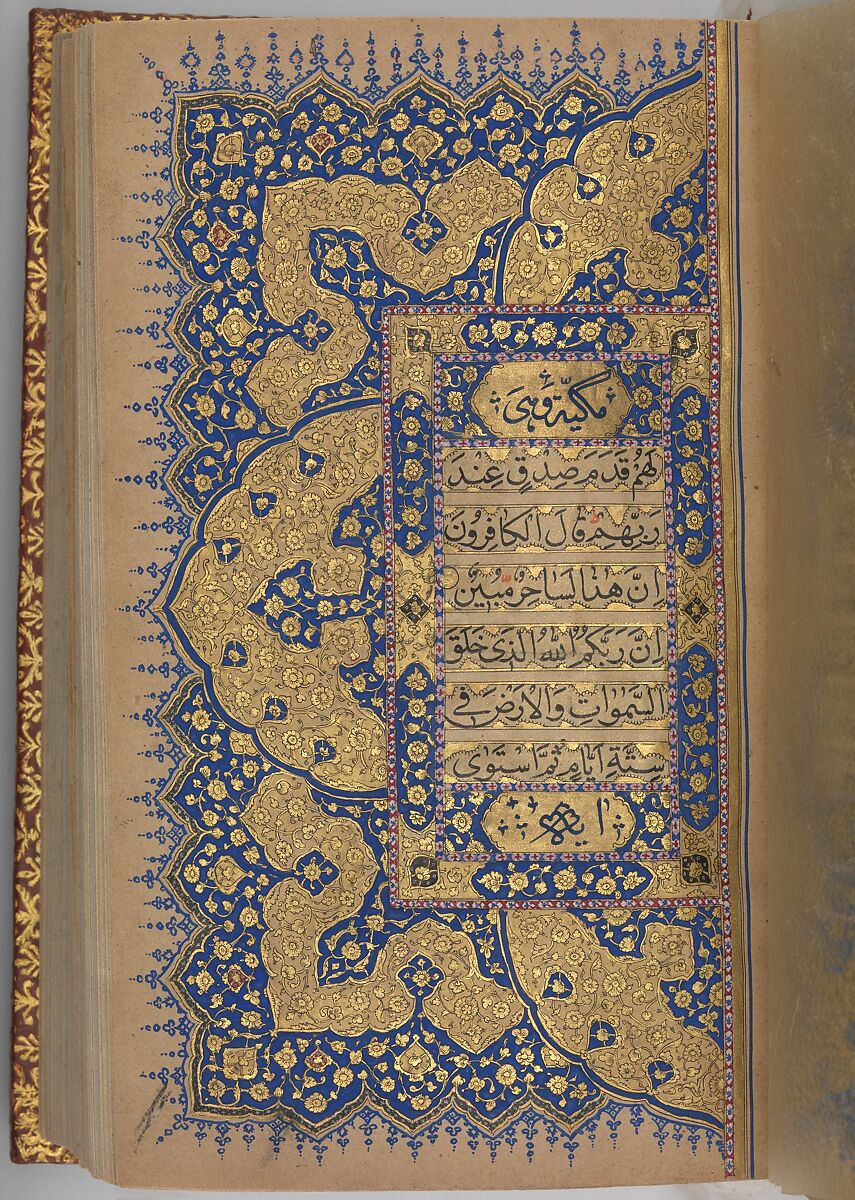 مَكِيّة وَهِیَ
لَهُمْ قَدَمَ صِدْقٍ عِنْدَ
رَبِّهِمْ قَالَ الْكَافِرُونَ
اِنَّ هٰذَا لَسَاحِرٌ مُّبِينٌ
اِنَّ رَبَّكُمُ اللهُ الَّذِی خَلَقَ
السَّمٰوَاتِ وَالْاَرْضَ فِی
سِتَّةِ اَيَّامٍ ثُمَّ اسْتَوٰی